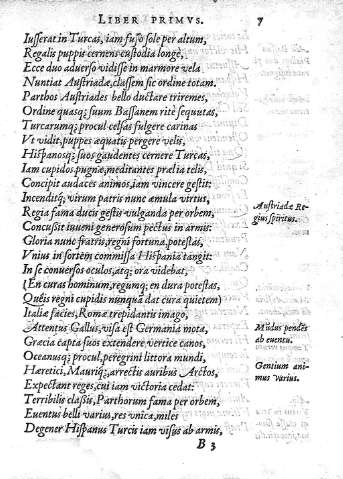 LIBER PRIMVS. 7
Iusserat in Turcas, iam fuso sole per altum,
Regalis puppis cernens custodia longè,
Ecce duo aduerso vidisse in marmore vela
Nuntiat Austriadæ, classem sic ordine totam.
Parthos Austriades bello ductare triremes,
Ordine quasq; suum Bassanem ritè sequutas,
Turcarumq; procul celsas fulgere carinas
Vt vidit, puppes æquatis pergere velis,
Hispanosq; suos gaudentes cernere Turcas,
Iam cupidos pugnæ, meditantes prælia telis,
Concipit audaces animos, iam vincere gestit:
Incenditq; virum patris nunc æmula virtus,
Regia fama ducis gestis vulganda per orbem,
Austriadæ Re-
gius spiritus.
Concussit iuueni generosum pectus in armis:
Gloria nunc fratris, regni fortuna, potestas,
Vnius in sortem commissa Hispania tangit:
In se conuersos oculos, atq; ora videbat,
(En curas hominum, regumq; en dura potestas,
Quęis regni cupidis nunquã dat cura quietem)
Italiæ facies, Romæ trepidantis imago,
Attentus Gallus, visa est Germania mota,
Mũdus pendẽt
ab euentu.
Græcia capta suos extendere vertice canos,
Oceanusq; procul, peregrini littora mundi,
Hæretici, Mauriq;, arrectis auribus Arctos,
Gentium ani-
mus varius.
Expectant reges, cui iam victoria cedat:
Terribilis classis, Parthorum fama per orbem,
Euentus belli varius, res vnica, miles
Degener Hispanus Turcis iam visus ab armis,
B 3